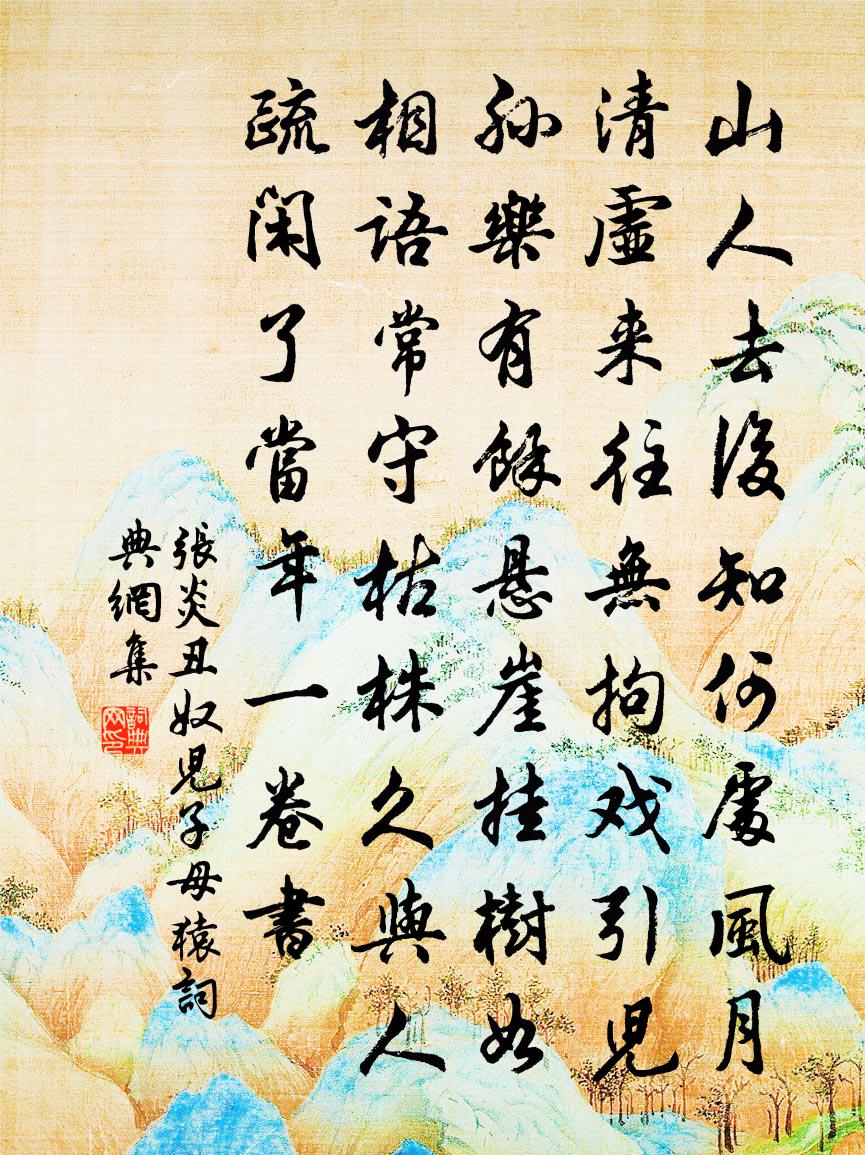 山人去後知何處風月
清虛来往無拘戏引児
孫樂有餘悬崖挂樹如
相語常守枯株久與人
疏闲了當年一卷書
張炎丑奴児子母猿詞
典網集
詞典網印